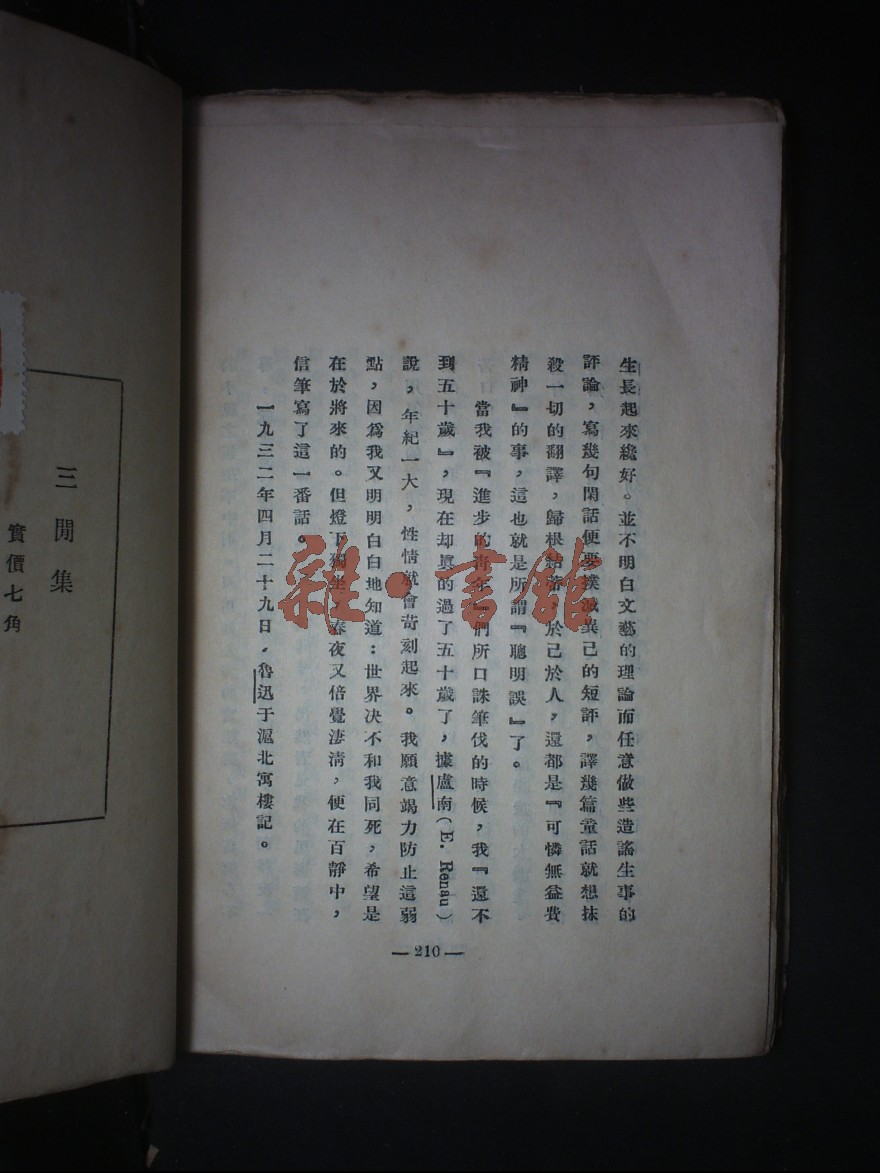 生長起來纔好。並不明白文藝的理論而任意做些造謠生事的
評論，寫幾句閑話便要撲滅異己的短評，譯幾篇童話就想抹
殺一切的翻譯，歸根結蒂，於己於人，還都是『可憐無益費
精神』的事，這也就是所謂『聰明誤』了。
當我被『進步的青年』們所口誅筆伐的時候，我『還不
到五十歲』，現在却眞的過了五十歲了，據盧南（E. Renan）
說，年紀一大，性情就會苛刻起來。我願意竭力防止這弱
點，因爲我又明明白白地知道：世界决不和我同死，希望是
在於將來的。但燈下獨坐，春夜又倍覺淒清，便在百靜中，
信筆寫了這一番話。
一九三二年四月二十九日，魯迅于滬北寓樓記。
— 210 —
三閒集
實價七角
雜·書館